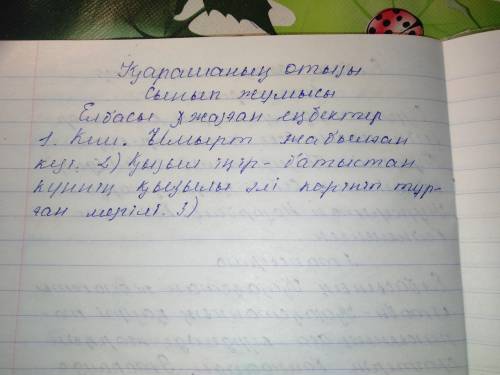 Қарашаның отызы
Сынып жұмысы
Елбасы жазған еңбектер
1. Кеш. Ымырт жабылған
кез. 2) Қызыл іңір - батыстан
күннің қызылы әлі көрініп тұр-
ған мезгілі. 3)